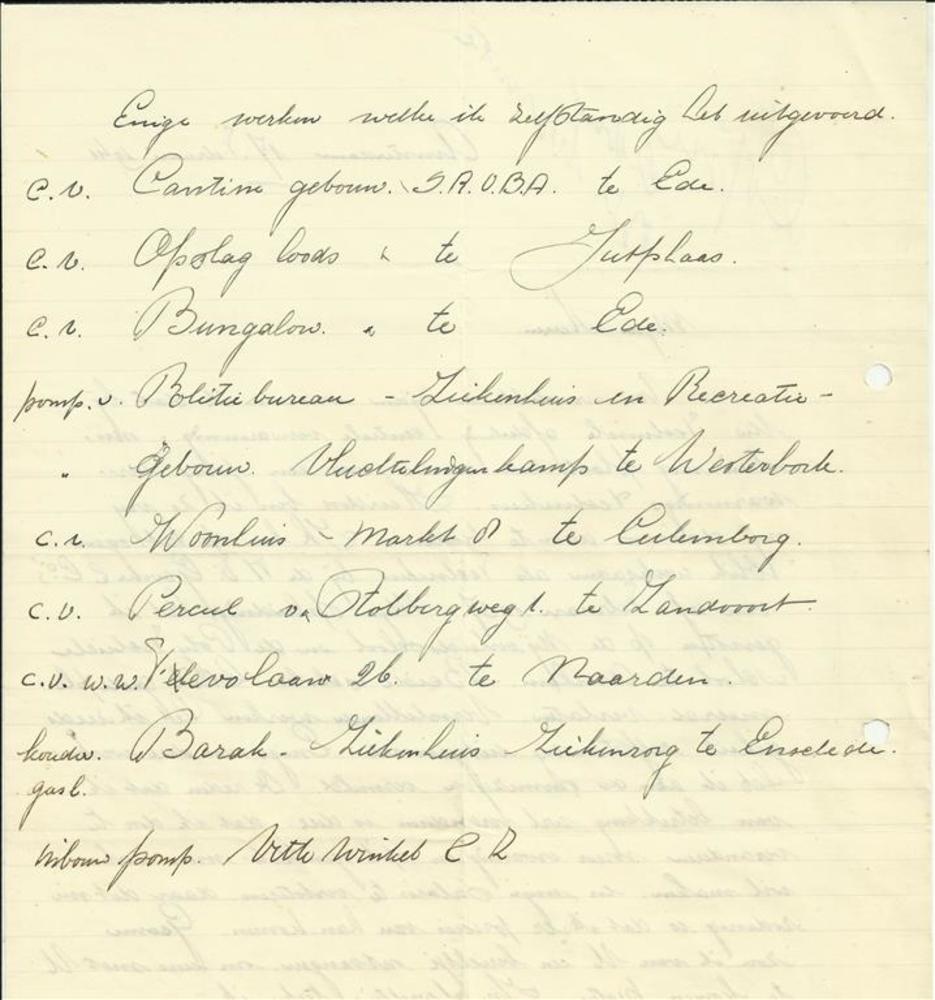 Enige werken welke ik zelfstandig heb uitgevoerd.
C.V. Cantine gebouw. S.A.O.B.A. te Ede.
C.V. Opslag loods " te Jutphaas.
C.V. Bungalow. " te Ede.
pomp. v. Politie bureau - Ziekenhuis en Recreatie -
" Gebouw. Vluchtelingenkamp te Westerbork.
C.V. Woonhuis - Markt 8 te Culemborg.
C.V. Perceel v. Stolbergweg 1. te Zandvoort.
C.V. W.W. Flevolaan 26. te Naarden.
Barak - Ziekenhuis Ziekenzorg te Enschede.
gas l.
inbouw pomp. Winkel